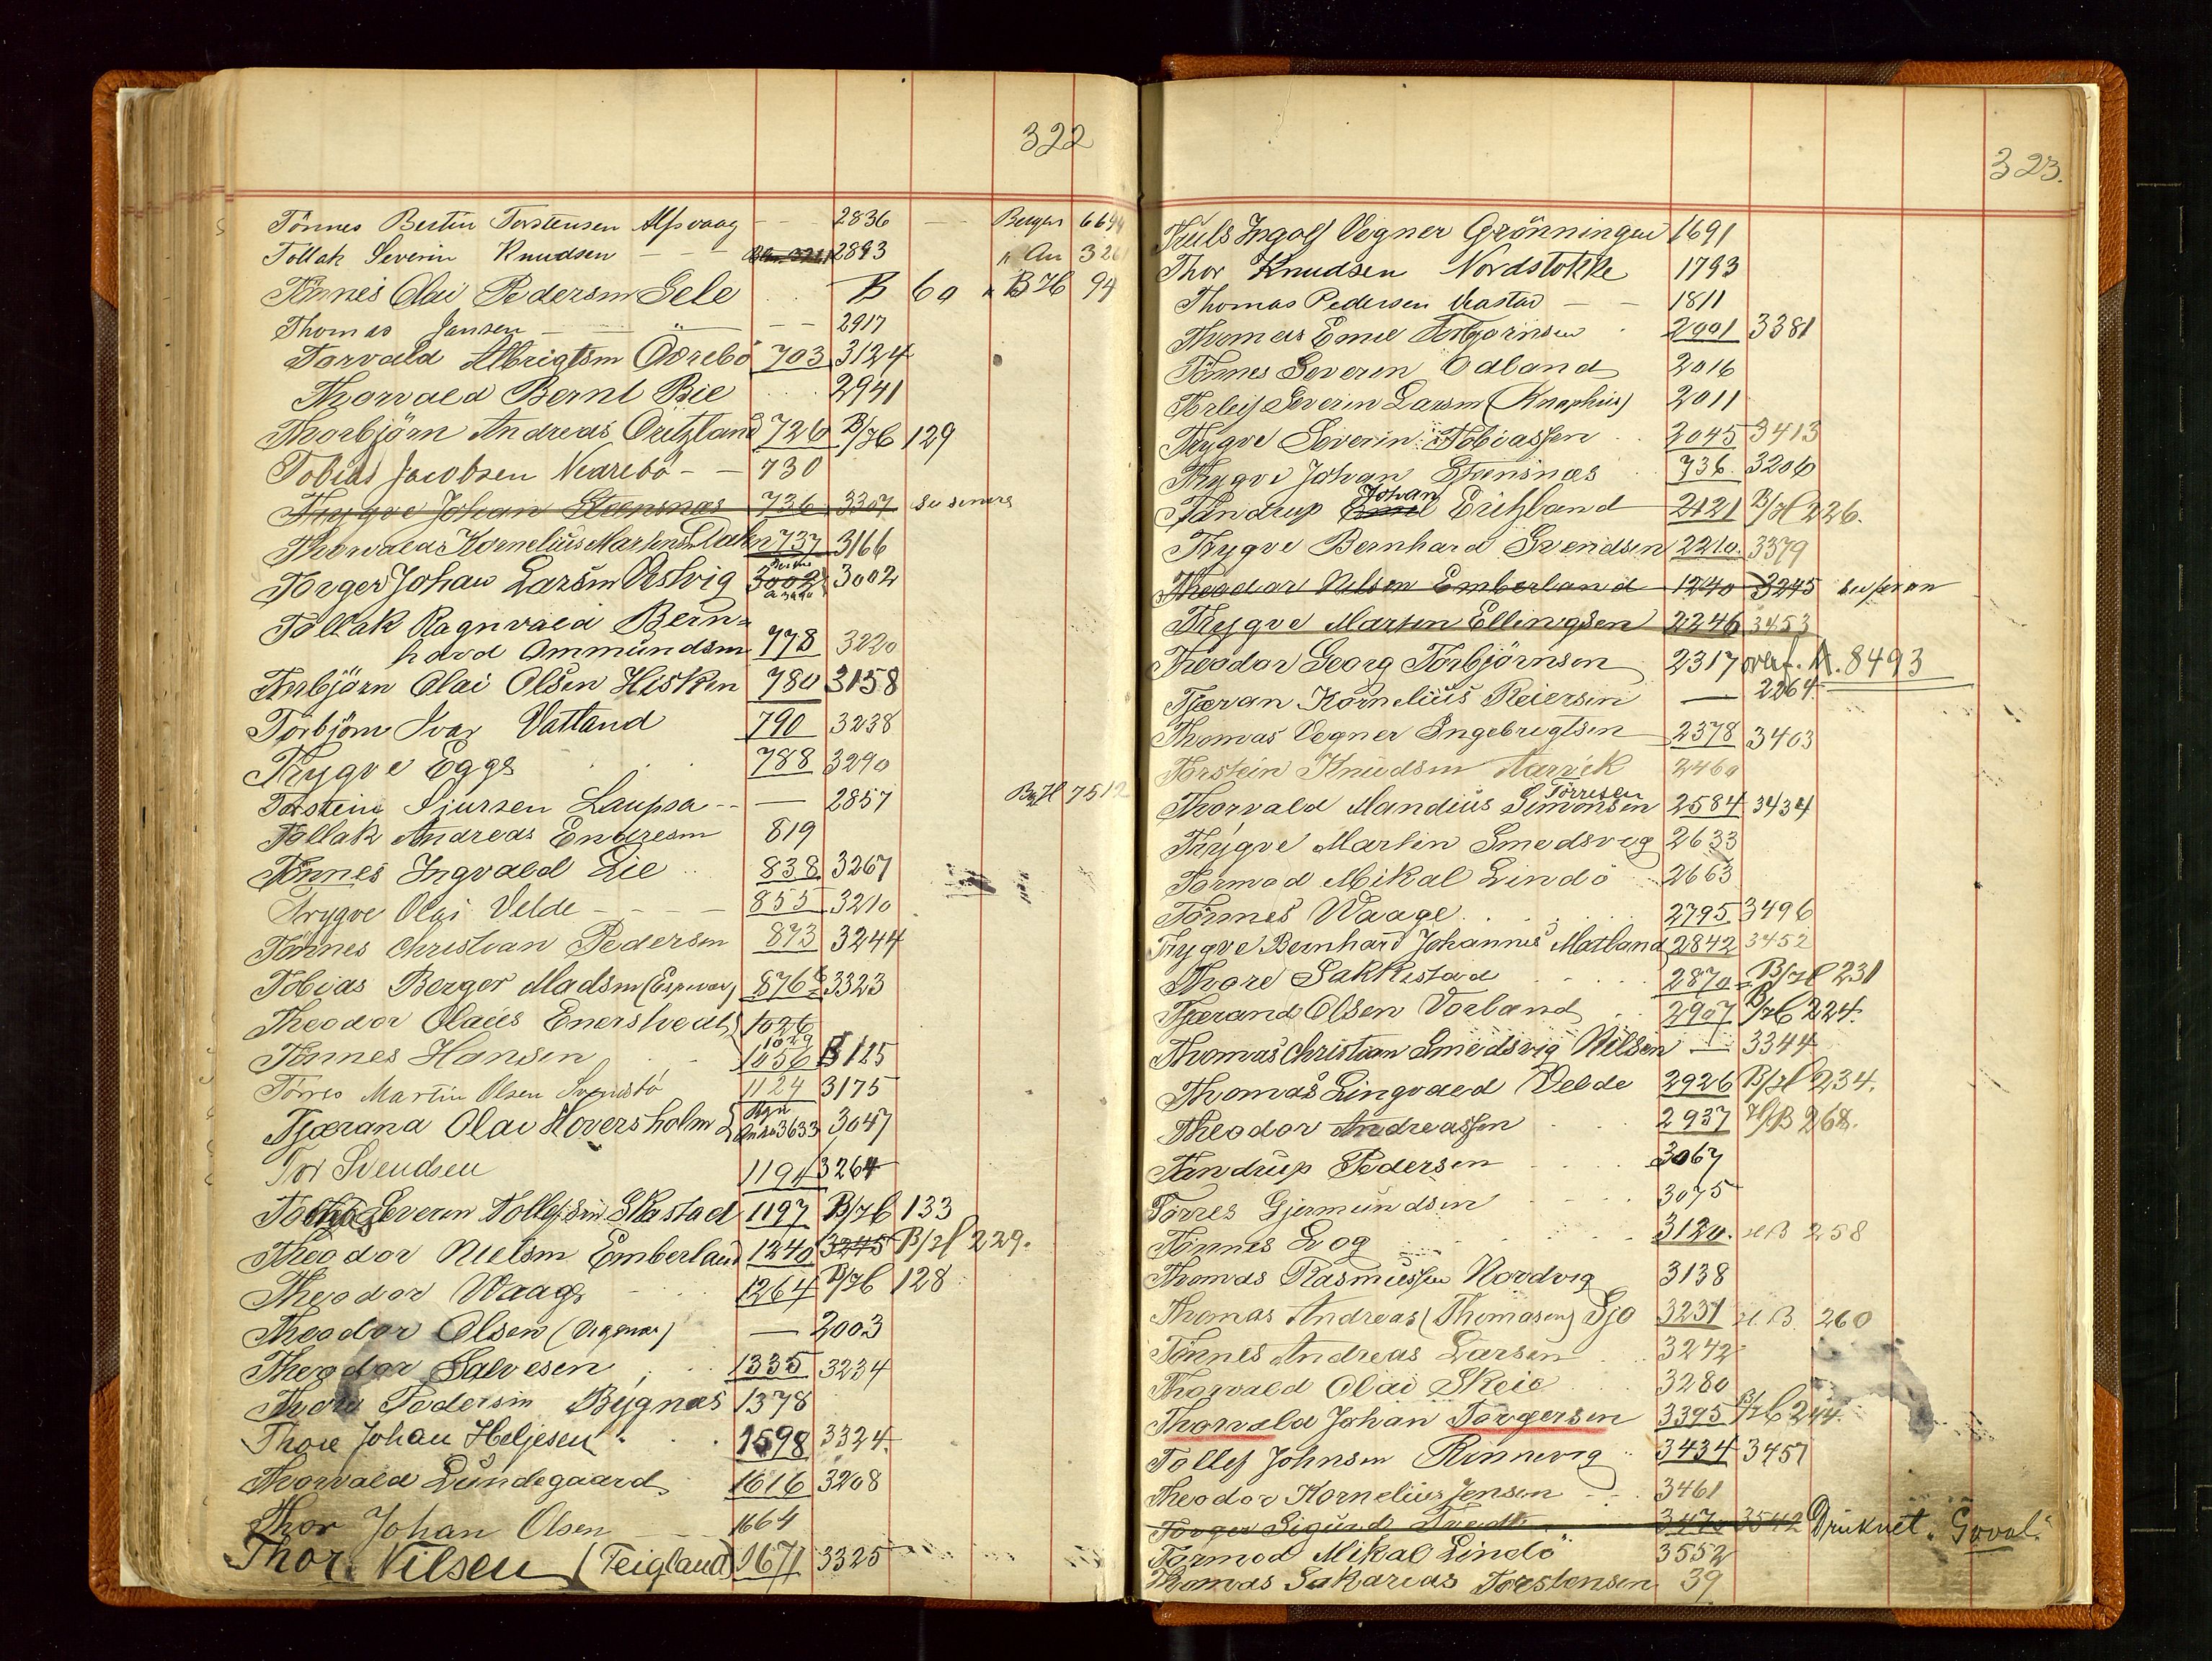 322
Tönnes Bertin Torstensen Alfsvaag — 2836 — Bergen 664
Tollak Severin Knudsen — 2893 " Au 326
Tönnes Olai Pedersen Sele B 60 " B H 94
Thomas Jansen — 2917
Torvald Albrigtsen Övrebö 703 3124
Thorvald Bernt Bie 2941
Thorbjörn Andreas Öritzland 726 B/H 129
Tobias Jacobsen Nedrebö - - 730
Trygve Johan Steensnæs 736 3307 se senere
Thorvald Kornelius Martinsen 737 3166
Torger Johan Larsen Vestvig 3002 3002
Tollak Ragnvald Bern=
hard Ommundsen 778 3220
Torbjörn Olai Olsen Hisken 780 3158
Torbjörn Ivar Vatland 790 3238
Trygve Eggs 788 3290
Torstein Sjursen Laupsa -- — 2857 Bg H 7512
Tollak Andreas Endresen 819
Tönnes Ingvald Lie 838 3267
Trygve Olai Velde - - - - 855 3210
Tönnes Christian Pedersen 873 3244
Tobias Berger Madsen (Espevær) 876 3323
Theodor Olaus Enerstvedt 1026
1029
Tönnes Hansen 1056 B 125
Törres Martin Olsen Svendsbö 1124 3175
Tjærand Olai Hoversholm 3633 3047
Tor Svendsen 1191 3264
Severin Tollefsen Skastad 1197 B/H 133
Theodor Nielsen Emberland 1240 3245 B/H 229.
Theodor Waage 1264 B/H 128
Theodor Olsen — 2003
Theodor Salvesen 1335 3234
Thore Pedersen Bygnæs 1378
Thore Johan Heljesen 1598 3324.
Thorvald Lundegaard 1616 3208
Thor Johan Olsen — 1664
Thor. Nilsen (Feigland) 1671 3325
323.
Truls Ingolf Vegner Grönningen 1691
Thor Knudsen Nordstokke 1793
Thomas Pedersen Mastad — — 1811
Thomas Emil Torbjörnsen 2001 3381
Tönnes Severin Odland 2016
Torleif Severin Larsen (Knaphus) 2011
Trygve Severin Tobiassen 2045 3413
Trygve Johan Steensnæs 736. 3206
Johan
Tandrup Emil Eritzland 2121 B/H 226.
Trygve Bernhard Svendsen 2210. 3379
Theodor Nilsen Emberland 1240 3245
Trygve Martin Ellingsen 2246 3453
Theodor Georg Torbjörnsen 2317 overf. A. 8493
Tjæran Kornelius Reiersen — 2264.
Thomas Vegner Ingebrigtsen 2378 3403
Torstein Knudsen Aarvik 2460
Törresen
Thorvald Mandius Simonsen 2584 3434
Trygve Martin Smedsvig 2633
Tormod Mikal Lindö 2663
Tönnes Waage. 2795 3496
Trygve Bernhard Johannes Matland 2842 3452
Thore Sakkestad 2870 B/H 231
Tjærand Olsen Vorland 2907 B/H 224.
Thomas Christian Smedsvig Nilsen — 3344
Thomas Lingvald Velde 2926 B/H 234.
Theodor Andreassen 2937 H/B 268.
Tandrup Pedersen 3067
Törres Gjermundsen 3075
Tönnes Log 3120. H B 258
Thomas Rasmussen Nordvig 3138
Thomas Andreas (Thomasen) Sjo 3231 H. B. 260
Tönnes Andreas Larsen 3242
Thorvald Olai Skeie 3280
Thorvald Johan Torgersen 3395 B/H 244.
Tollef Johnsen Rinnevig 3434 3457
Theodor Kornelius Jensen 3461
Torger Sigurd Tvedt 3470 3542 Druknet "Goval."
Tormod Mikal Lindö 3552
Thomas Sakarias Torstensen 39